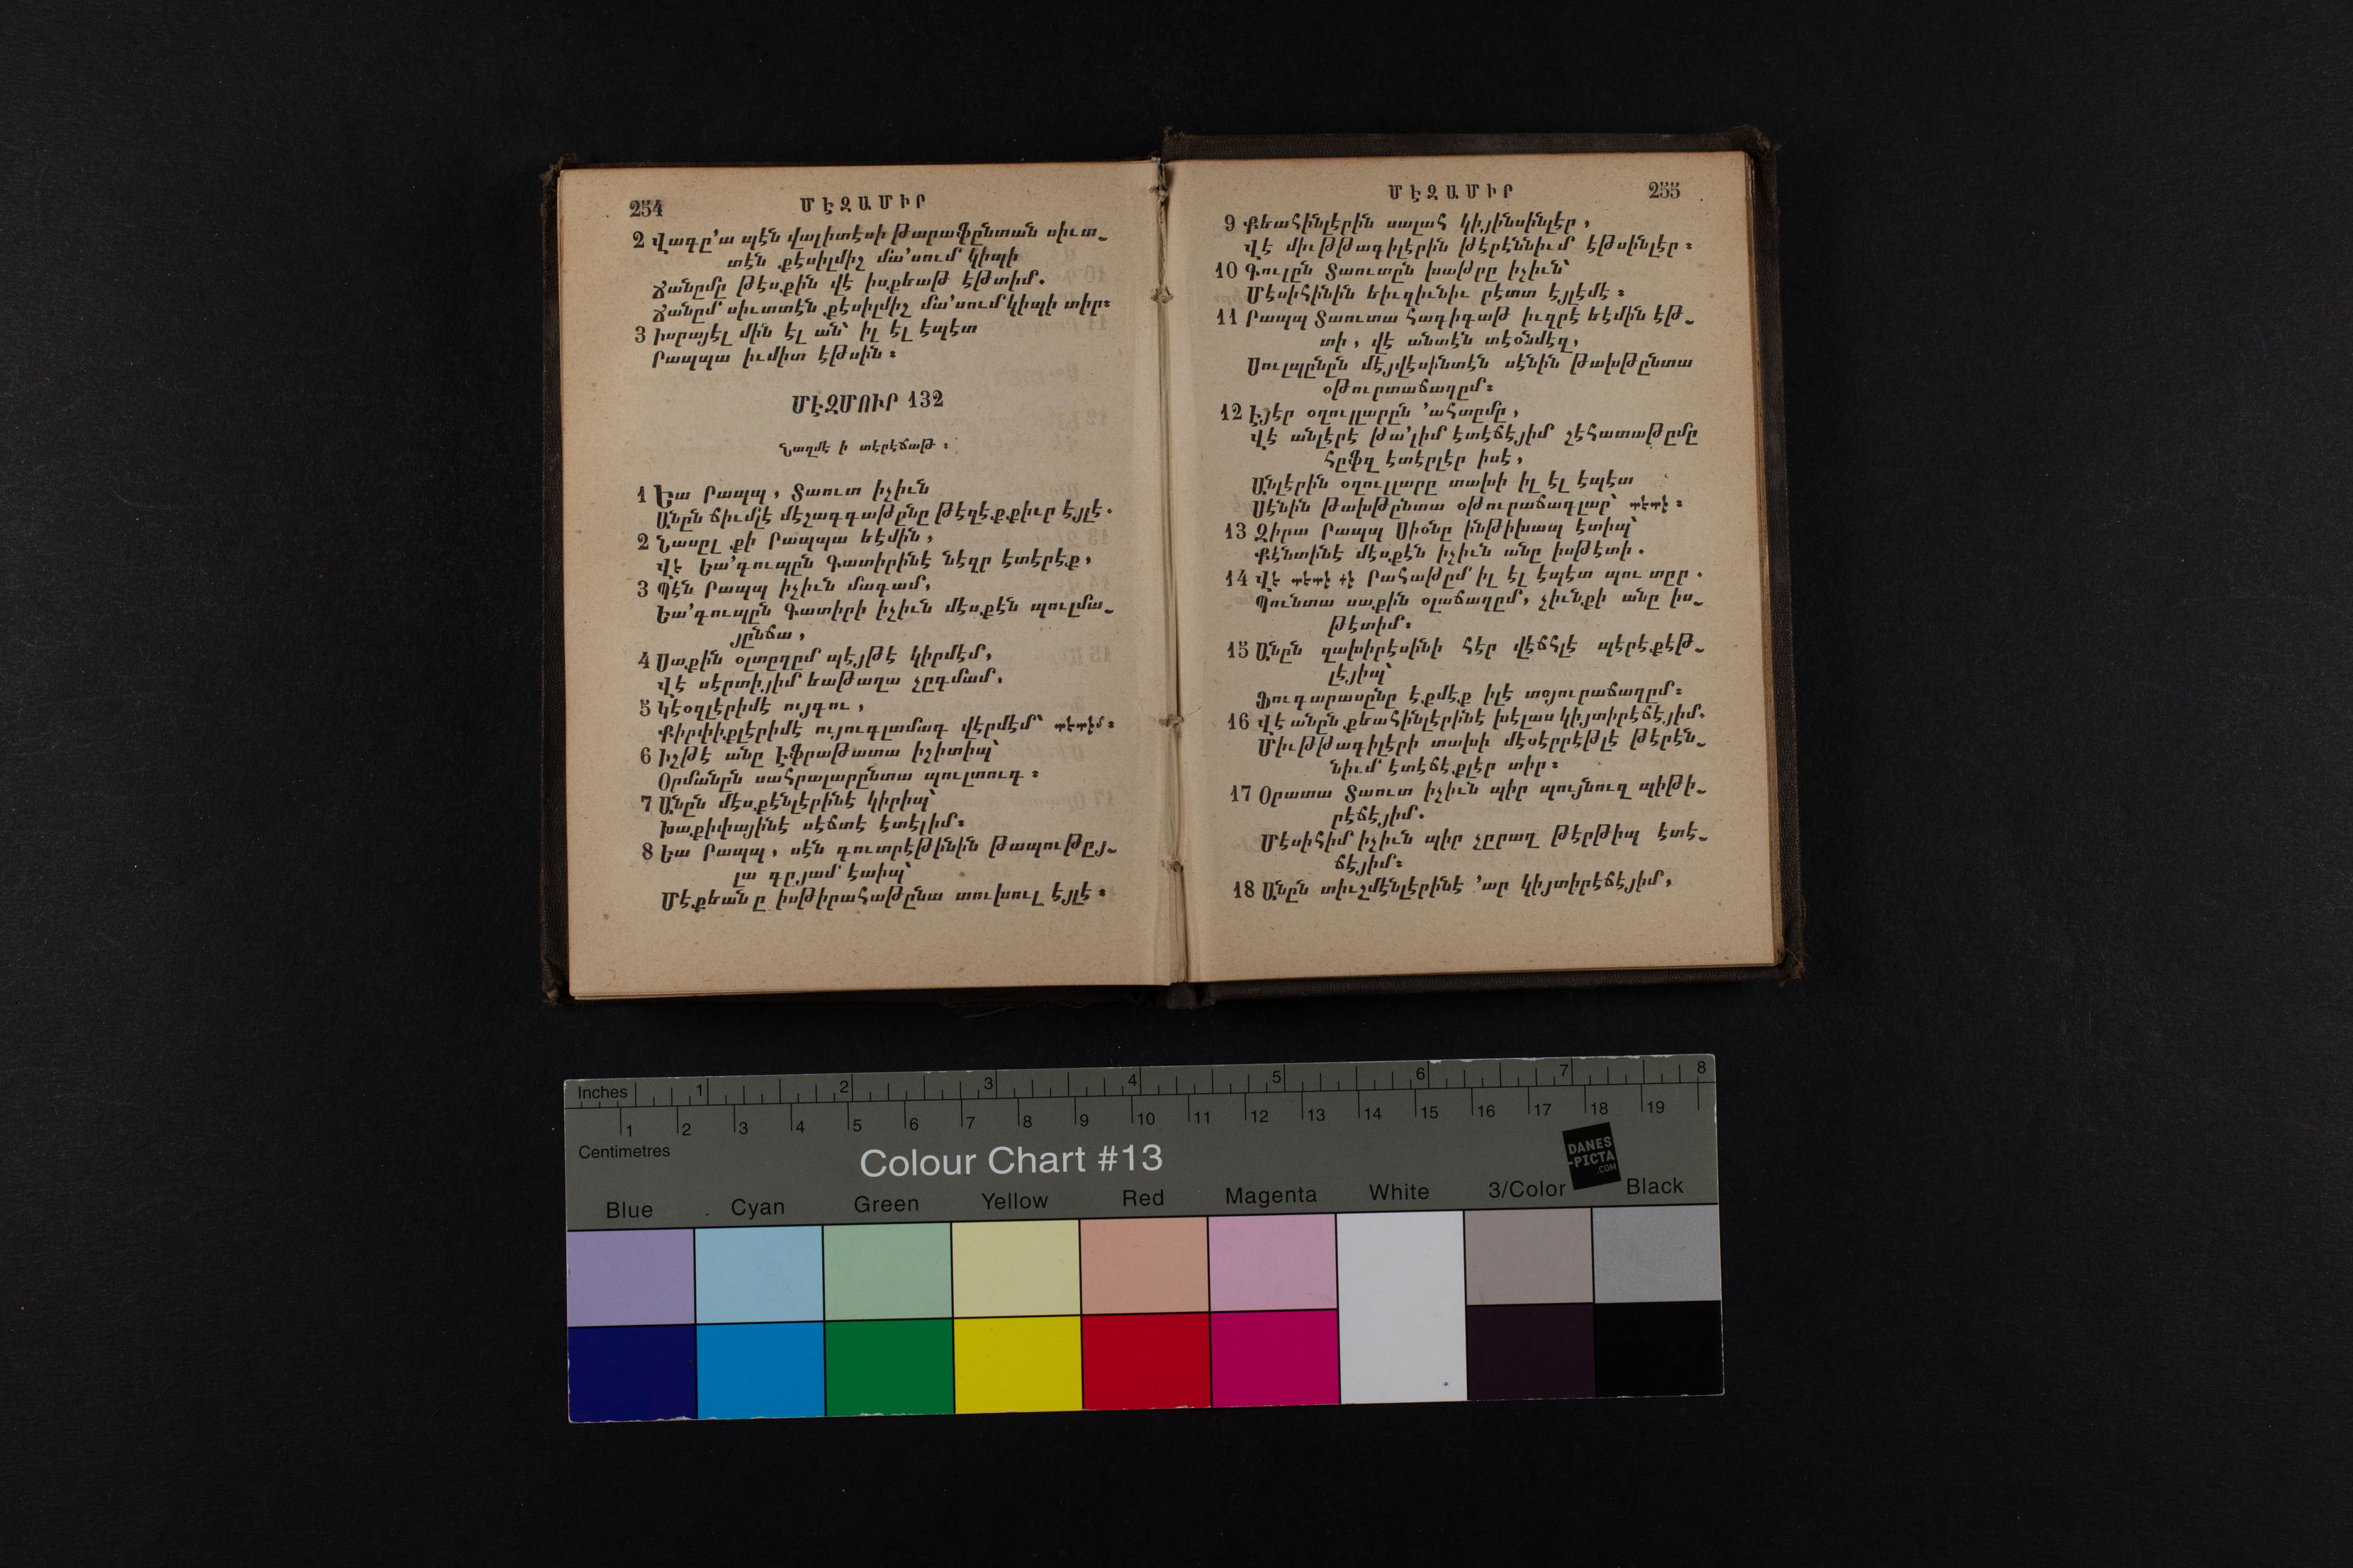 254
ՄԷԶԱՄԻՐ
2 Վագը՛ա պէն վալիտէսի թարաֆընտան սիւտ֊
տէն քէսիլմիշ մա՛սում կիպի
Ճանըմը թէսքին վէ իսքեաթ էթտիմ.
Ճանըմ սիւտտէն քէսիլմիշ մա՛սում կիպի տիր։
3 Իսրայէլ մին էլ ան՝ իլ էլ էպէտ
Րապպա իւմիտ էթսին ։
ՄԷԶՄՈՒՐ 132
Նաղմէ ի տէրէճաթ ։
1 Եա Րապպ, Տաուտ իչիւն
Անըն ճիւմլէ մէշագգաթընը թէզէքքիւր էյլէ.
2 Նասըլ քի Րապպա եէմին,
Վէ Եա՛գուպըն Գատիրինէ նէզր էտէրէք,
3 Պէն Րապպ իչիւն մագամ,
Եա՛գուպըն Գատիրի իչիւն մէսքէն պուլմա֊
յընճա,
4 Սաքին օլտըղըմ պէյթէ կիրմէմ,
Վէ սէրտիյիմ եաթաղա չըգմամ.
5 Կէօզլէրիմէ ույգու,
Քիրփիքլէրիմէ ույուգլամագ վէրմէմ՝ տէտիմ։
6 Իշթէ անը Էֆրաթատա իշիտիպ՝
Օրմանըն սահրալարընտա պուլտուգ ։
7 Անըն մէսքէնլէրինէ կիրիպ՝
Խաքիփայինէ սէճտէ էտէլիմ։
8 Եա Րապպ, սէն գուտրէթինին թապութըյ֊
լա գըյամ էտիպ՝
Մէքեանը իսթիրահաթընա տուխուլ էյլէ ։
ՄԷԶԱՄԻՐ
255
9 Քեահինլէրին սալահ կիյինսինլէր,
Վէ միւթթագիլէրին թէրէննիւմ էթսինլէր ։
10 Գուլըն Տաուտըն խաթըրը իչիւն՝
Մէսիհինին եիւզիւնիւ րէտտ էյլէմէ ։
11 Րապպ Տաուտա հագիգաթ իւզրէ եէմին էթ֊
տի, վէ անտէն տէօնմէզ,
Սուլպընըն մէյվէսինտէն սէնին թախթընտա
օթուրտաճաղըմ։
12 Էյէր օղուլլարըն ՛ահտըմը,
Վէ անլէրէ թա՛լիմ էտէճէյիմ շէհատաթըմը
հըֆզ էտէրլէր իսէ,
Անլէրին օղուլլարը տախի իլ էլ էպէտ
Սէնին թախթընտա օթուրաճագլար՝ տէտի ։
13 Զիրա Րապպ Սիօնը ինթիխապ էտիպ՝
Քէնտինէ մէսքէն իչիւն անը իսթէտի.
14 Վէ տէտի քի Րահաթըմ իլ էլ էպէտ պու տըր.
Պունտա սաքին օլաճաղըմ, չիւնքի անը իս֊
թէտիմ։
15 Անըն զախիրէսինի հէր վէճհլէ պէրէքէթ֊
լէյիպ՝
Ֆուգարասընը էքմէք իլէ տօյուրաճաղըմ։
16 Վէ անըն քեահինլէրինէ խէլաս կիյտիրէճէյիմ.
Միւթթագիլէրի տախի մէսէրրէթլէ թէրէն֊
նիւմ էտէճէքլէր տիր։
17 Օրատա Տաուտ իչիւն պիր պույնուզ պիթի֊
րէճէյիմ.
Մէսիհիմ իչիւն պիր չըրաղ թէրթիպ էտէ֊
ճէյիմ։
18 Անըն տիւշմէնլէրինէ ՛ար կիյտիրէճէյիմ,
Inches 1 2 3 4 5 6 7 8
1 2 3 4 5 6 7 8 9 10 11 12 13 14 15 16 17 18 19
Centimetres
Colour Chart #13
DANES
-PICTA
.COM
Blue Cyan Green Yellow Red Magenta White 3/Color Black